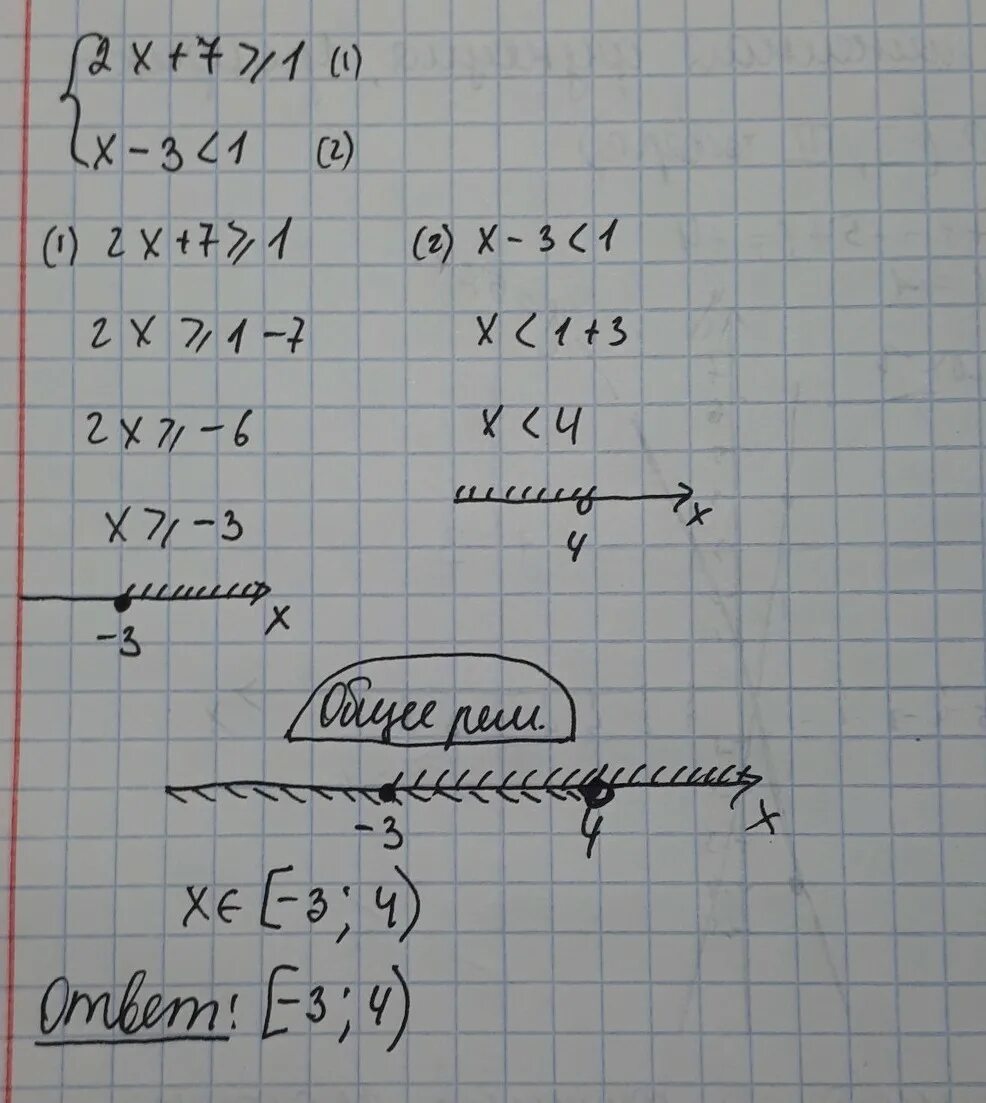 { 2x+7⩾1 (1)
x-3<1 (2)
(1) 2x+7⩾1
2x⩾1-7
2x⩾-6
x⩾-3
-3 x
(2) x-3<1
x<1+3
x<4
4 x
Общее реш.
-3 4 x
x∈[-3; 4)
Ответ: [-3; 4)